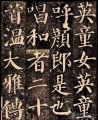 英童女英童
呼顏郎是也
唱和者二十
首溫大雅傳